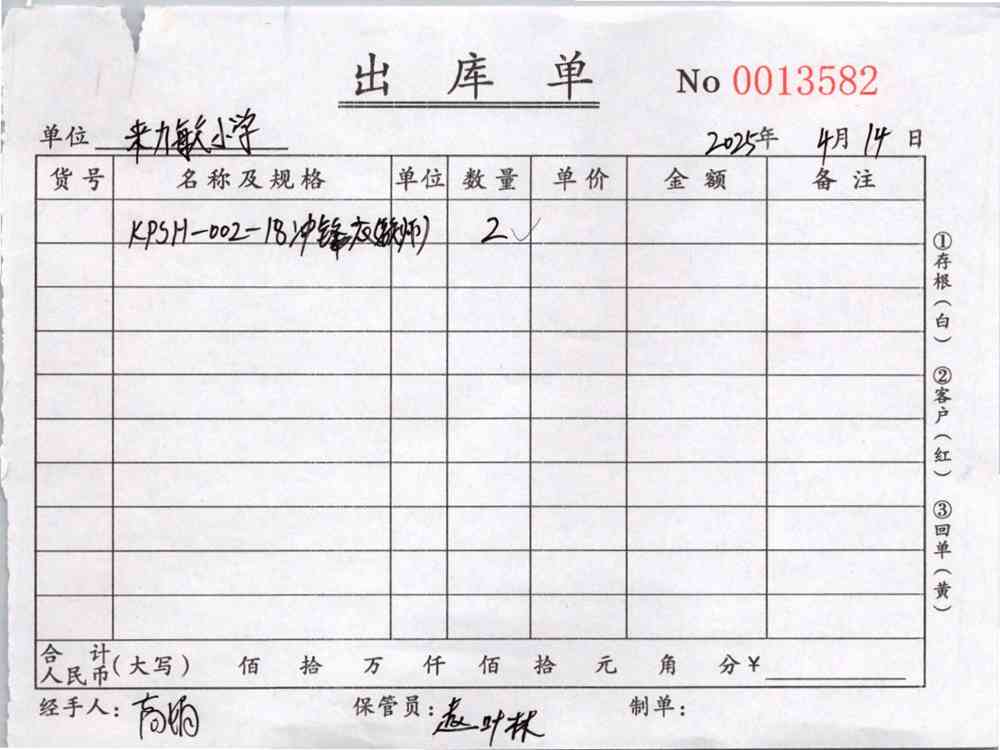 出库单 No 0013582
单位 来力毓小学 2025年 4月 14 日
货号 名称及规格 单位 数量 单价 金额 备注
KPSH-002-18冲锋衣(教师) 2✓
①存根(白) ②客户(红) ③回单(黄)
合计人民币(大写) 佰 拾 万 仟 佰 拾 元 角 分¥
经手人: 高娟 保管员: 赵叶林 制单: